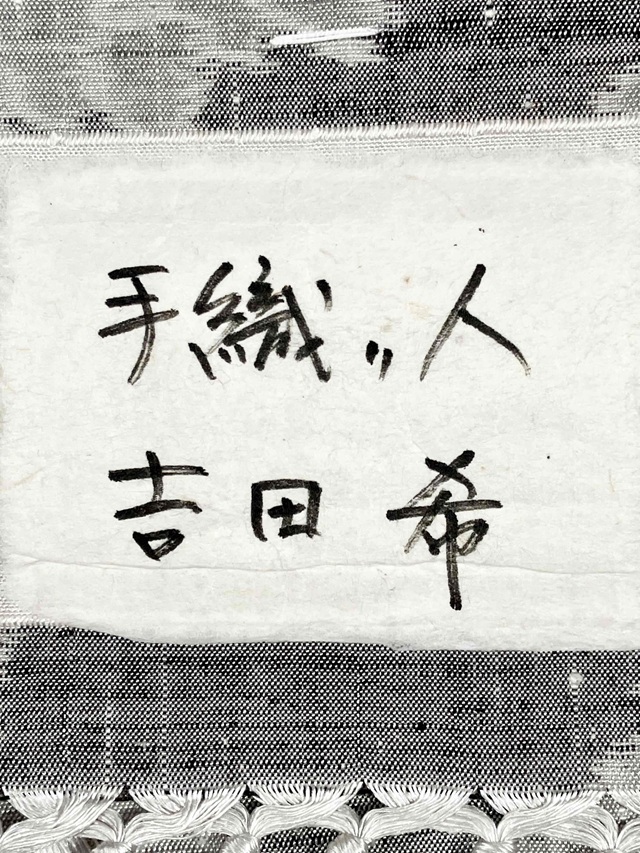 手織〃人
吉田希